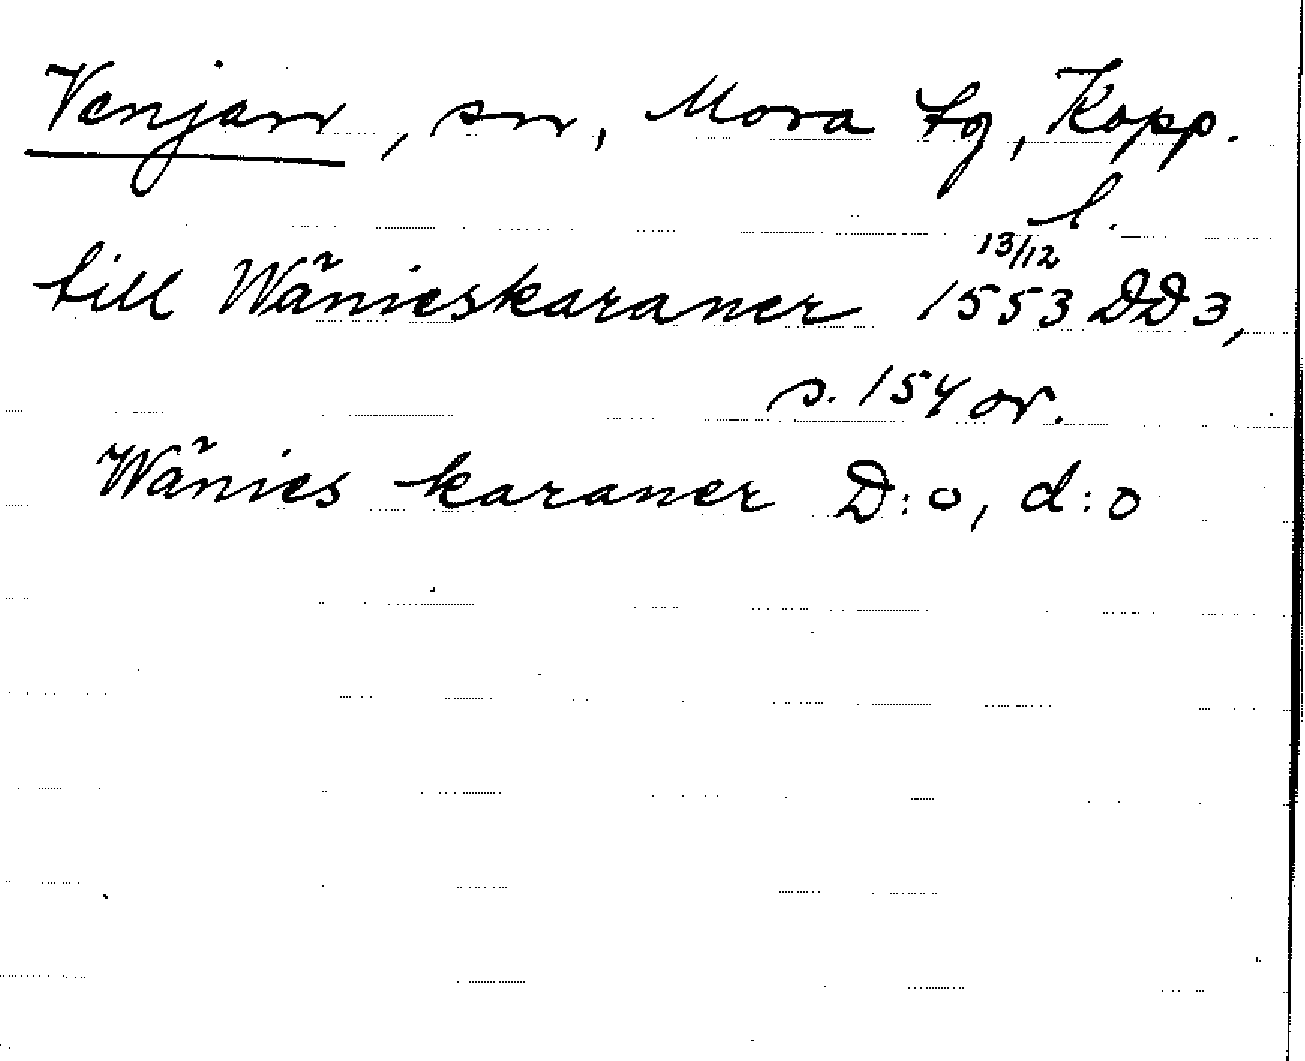 Venjan, sn, Mora tg, Kopp.
l.
till Wänieskaraner 13/12 1553 DD3,
s. 154 or.
Wänies karaner D:o, d:o